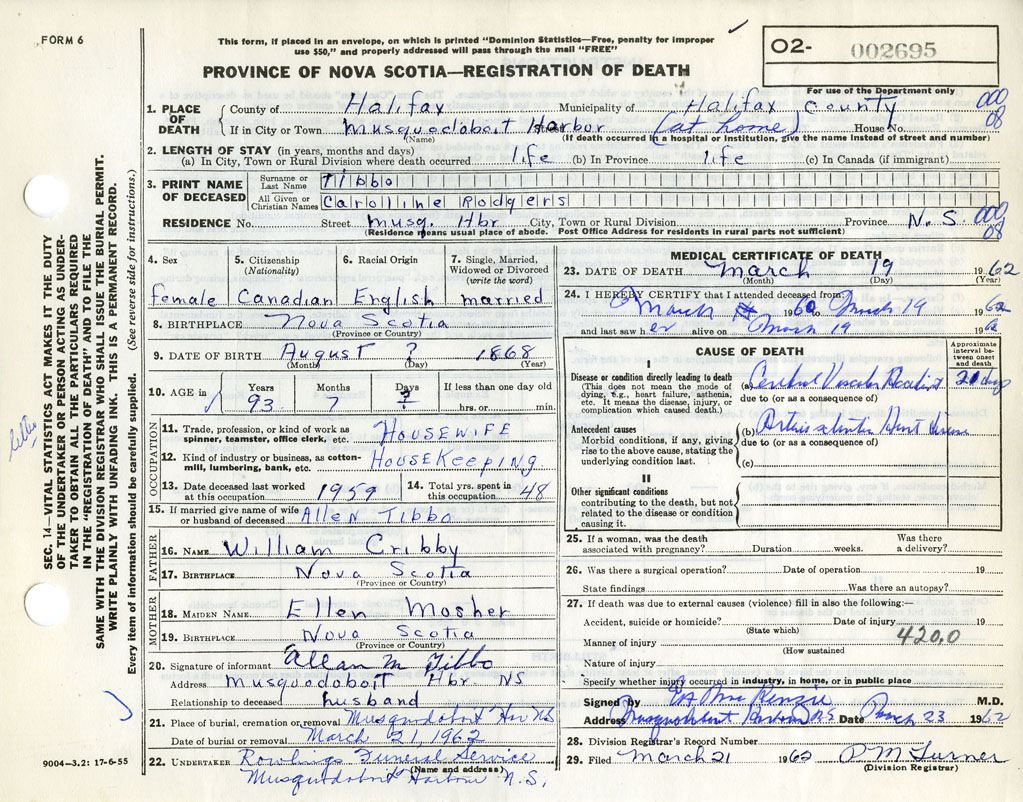 FORM 6
This form, if placed in an envelope, on which is printed "Dominion Statistics—Free, penalty for improper
use $50," and properly addressed will pass through the mail "FREE"
PROVINCE OF NOVA SCOTIA—REGISTRATION OF DEATH
O2- 002695
For use of the Department only
000
08
1. PLACE OF DEATH
County of Halifax Municipality of Halifax County
If in City or Town Musquodoboit Harbor (at home) House No.
(Name) (If death occurred in a hospital or institution, give the name instead of street and number)
2. LENGTH OF STAY (in years, months and days)
(a) In City, Town or Rural Division where death occurred life (b) In Province life (c) In Canada (if immigrant)
3. PRINT NAME OF DECEASED
Surname or Last Name Tibbo
All Given or Christian Names Carolline Rodgers
RESIDENCE No. Street Musq. Hbr City, Town or Rural Division Province N.S. 000
08
(Residence means usual place of abode. Post Office Address for residents in rural parts not sufficient)
4. Sex
female
5. Citizenship
(Nationality)
Canadian
6. Racial Origin
English
7. Single, Married,
Widowed or Divorced
(write the word)
married
8. BIRTHPLACE Nova Scotia
(Province or Country)
9. DATE OF BIRTH August ? 1868
(Month) (Day) (Year)
10. AGE in
Years 93
Months 7
Days ?
If less than one day old
hrs. or min.
OCCUPATION
11. Trade, profession, or kind of work as
spinner, teamster, office clerk, etc. HOUSEWIFE
12. Kind of industry or business, as cotton-
mill, lumbering, bank, etc. HOUSEKEEPING
13. Date deceased last worked
at this occupation 1959
14. Total yrs. spent in
this occupation 48
15. If married give name of wife
or husband of deceased Allen Tibbo
FATHER
16. NAME William Cribby
17. BIRTHPLACE Nova Scotia
(Province or Country)
MOTHER
18. MAIDEN NAME Ellen Mosher
19. BIRTHPLACE Nova Scotia
(Province or Country)
20. Signature of informant Allan M Tibbo
Address Musquodoboit Hbr NS
Relationship to deceased husband
21. Place of burial, cremation or removal Musquodoboit Hbr NS
Date of burial or removal March 21, 1962
22. UNDERTAKER Rowlings Funeral Service
(Name and address)
Musquodoboit Harbour N.S.
9004-3.2: 17-6-55
MEDICAL CERTIFICATE OF DEATH
23. DATE OF DEATH March 19 1962
(Month) (Day) (Year)
24. I HEREBY CERTIFY that I attended deceased from
March 1960 to March 19 1962
and last saw her alive on March 19 1962
CAUSE OF DEATH
Approximate
interval be-
tween onset
and death
I
Disease or condition directly leading to death
(This does not mean the mode of
dying, e.g., heart failure, asthenia,
etc. It means the disease, injury, or
complication which caused death.)
(a) Cerebral Vascular Accident
due to (or as a consequence of)
Antecedent causes
Morbid conditions, if any, giving
rise to the above cause, stating the
underlying condition last.
(b) Heart Disease
due to (or as a consequence of)
(c)
II
Other significant conditions
contributing to the death, but not
related to the disease or condition
causing it.
25. If a woman, was the death
associated with pregnancy? Duration weeks.
Was there
a delivery?
26. Was there a surgical operation? Date of operation 19
State findings Was there an autopsy?
27. If death was due to external causes (violence) fill in also the following:—
Accident, suicide or homicide? Date of injury 19
(State which)
420.0
Manner of injury
(How sustained
Nature of injury
Specify whether injury occurred in industry, in home, or in public place
Signed by McKenzie M.D.
Address Musquodoboit Harbour N.S. Date March 23 1962
28. Division Registrar's Record Number
29. Filed March 21 1962 P M Turner
(Division Registrar)
SEC. 14—VITAL STATISTICS ACT MAKES IT THE DUTY
OF THE UNDERTAKER OR PERSON ACTING AS UNDER-
TAKER TO OBTAIN ALL THE PARTICULARS REQUIRED
IN THE "REGISTRATION OF DEATH" AND TO FILE THE
SAME WITH THE DIVISION REGISTRAR WHO SHALL ISSUE THE BURIAL PERMIT.
WRITE PLAINLY WITH UNFADING INK. THIS IS A PERMANENT RECORD.
Every item of information should be carefully supplied. (See reverse side for instructions.)